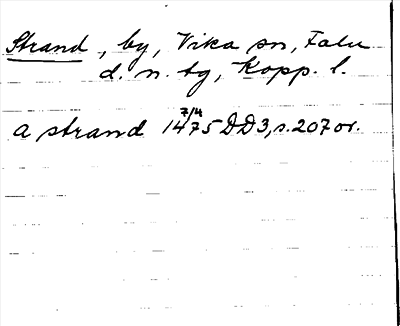 Strand, by, Vika sn, Falu
d. n. tg, Kopp. l.
7/4
a strand 1475 DD3, s. 207 or.